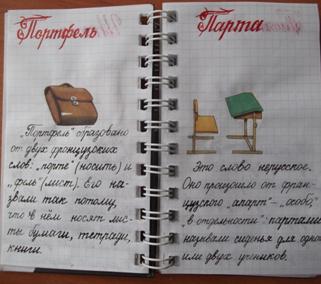 Портфель
"Портфель" образовано
от двух французских
слов: "порте" (носить) и
"фель" (лист). Его на-
звали так потому,
что в нём носят лис-
ты бумаги, тетради,
книги.
Парта
Это слово нерусское.
Оно произошло от фран-
цузского "апарт" – "особо,
в отдельности": партами
называли сиденья для одного
или двух учеников.